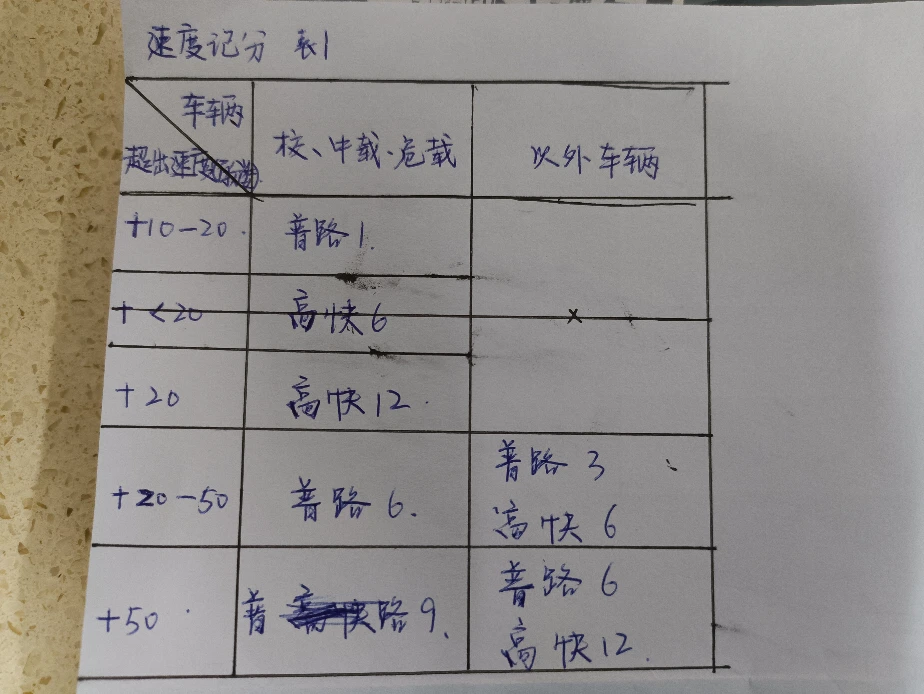 速度记分 表1
车车辆
超出速度
校、中载、危载
以外车辆
+10-20
普路1.
+<20
高快6
×
+20
高快12.
+20-50
普路6.
普路3
高快6
+50
普路9.
普路6
高快12.